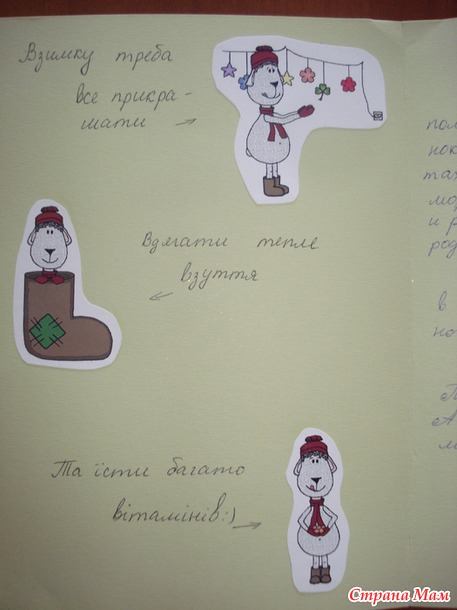 Взимку треба
все прикра-
шати
Взягати тепле
взуття
Та їсти багато
вітамінів:)
пол
нок
та
мо
и р
род
в
но
А
м
Страна Мам